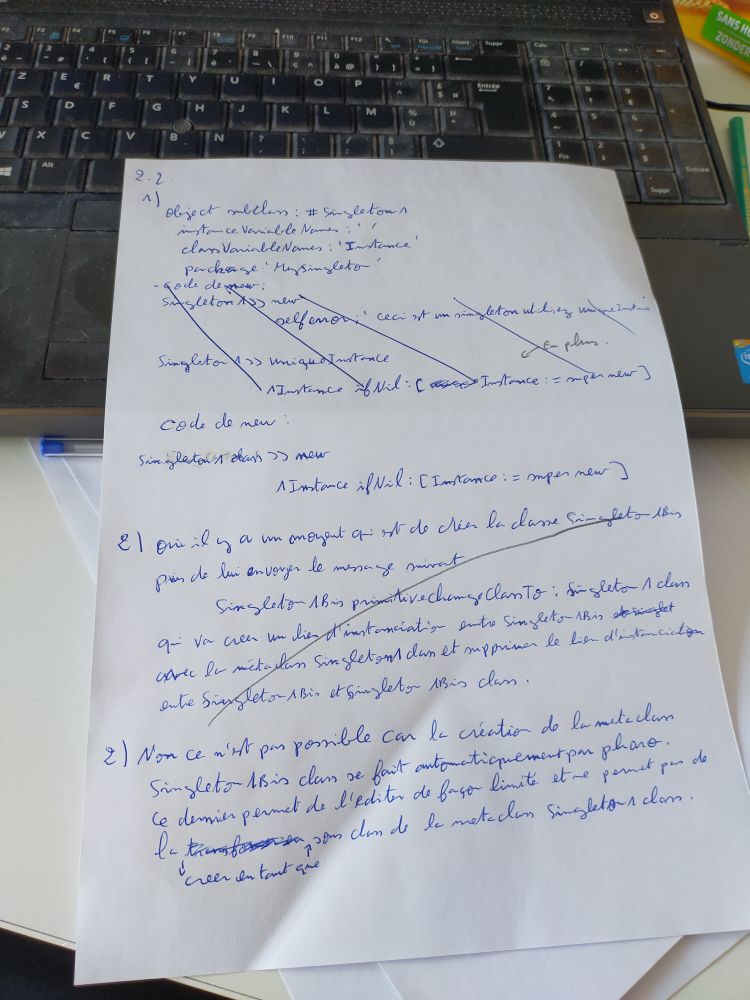 SANS HU
ZONDER
Inser
Suppr
Calc
F11
F12
Z E R T Y U I O P
Entrée
S D F G H J K L M
X C V B N
Alt
Fin
Suppr
Entrée
2.2.
1)
Object subclass: #Singleton1
instanceVariableNames: ' '
classVariableNames: 'Instance'
package: 'MySingleton'
- code de new:
Singleton1 >> new
self error: ' ceci est un singleton utilisez uniqueInstance
En plus.
Singleton1 >> uniqueInstance
^Instance ifNil: [ Instance := super new ]
code de new :
Singleton1 class >> new
^Instance ifNil: [ Instance := super new ]
2) Oui il y a un moyen qui est de créer la classe Singleton1Bis
puis de lui envoyer le message suivant
Singleton1Bis primitiveChangeClassTo: Singleton1 class
qui va creer un lien d'instanciation entre Singleton1Bis
avec la métaclass Singleton1 class et supprimer le lien d'instanciation
entre Singleton1Bis et Singleton1Bis class.
2) Non ce n'est pas possible car la création de la metaclass
Singleton1Bis class se fait automatiquement par pharo.
Ce dernier permet de l'éditer de façon limité et ne permet pas de
la sous class de la metaclass Singleton1 class.
creer en tant que